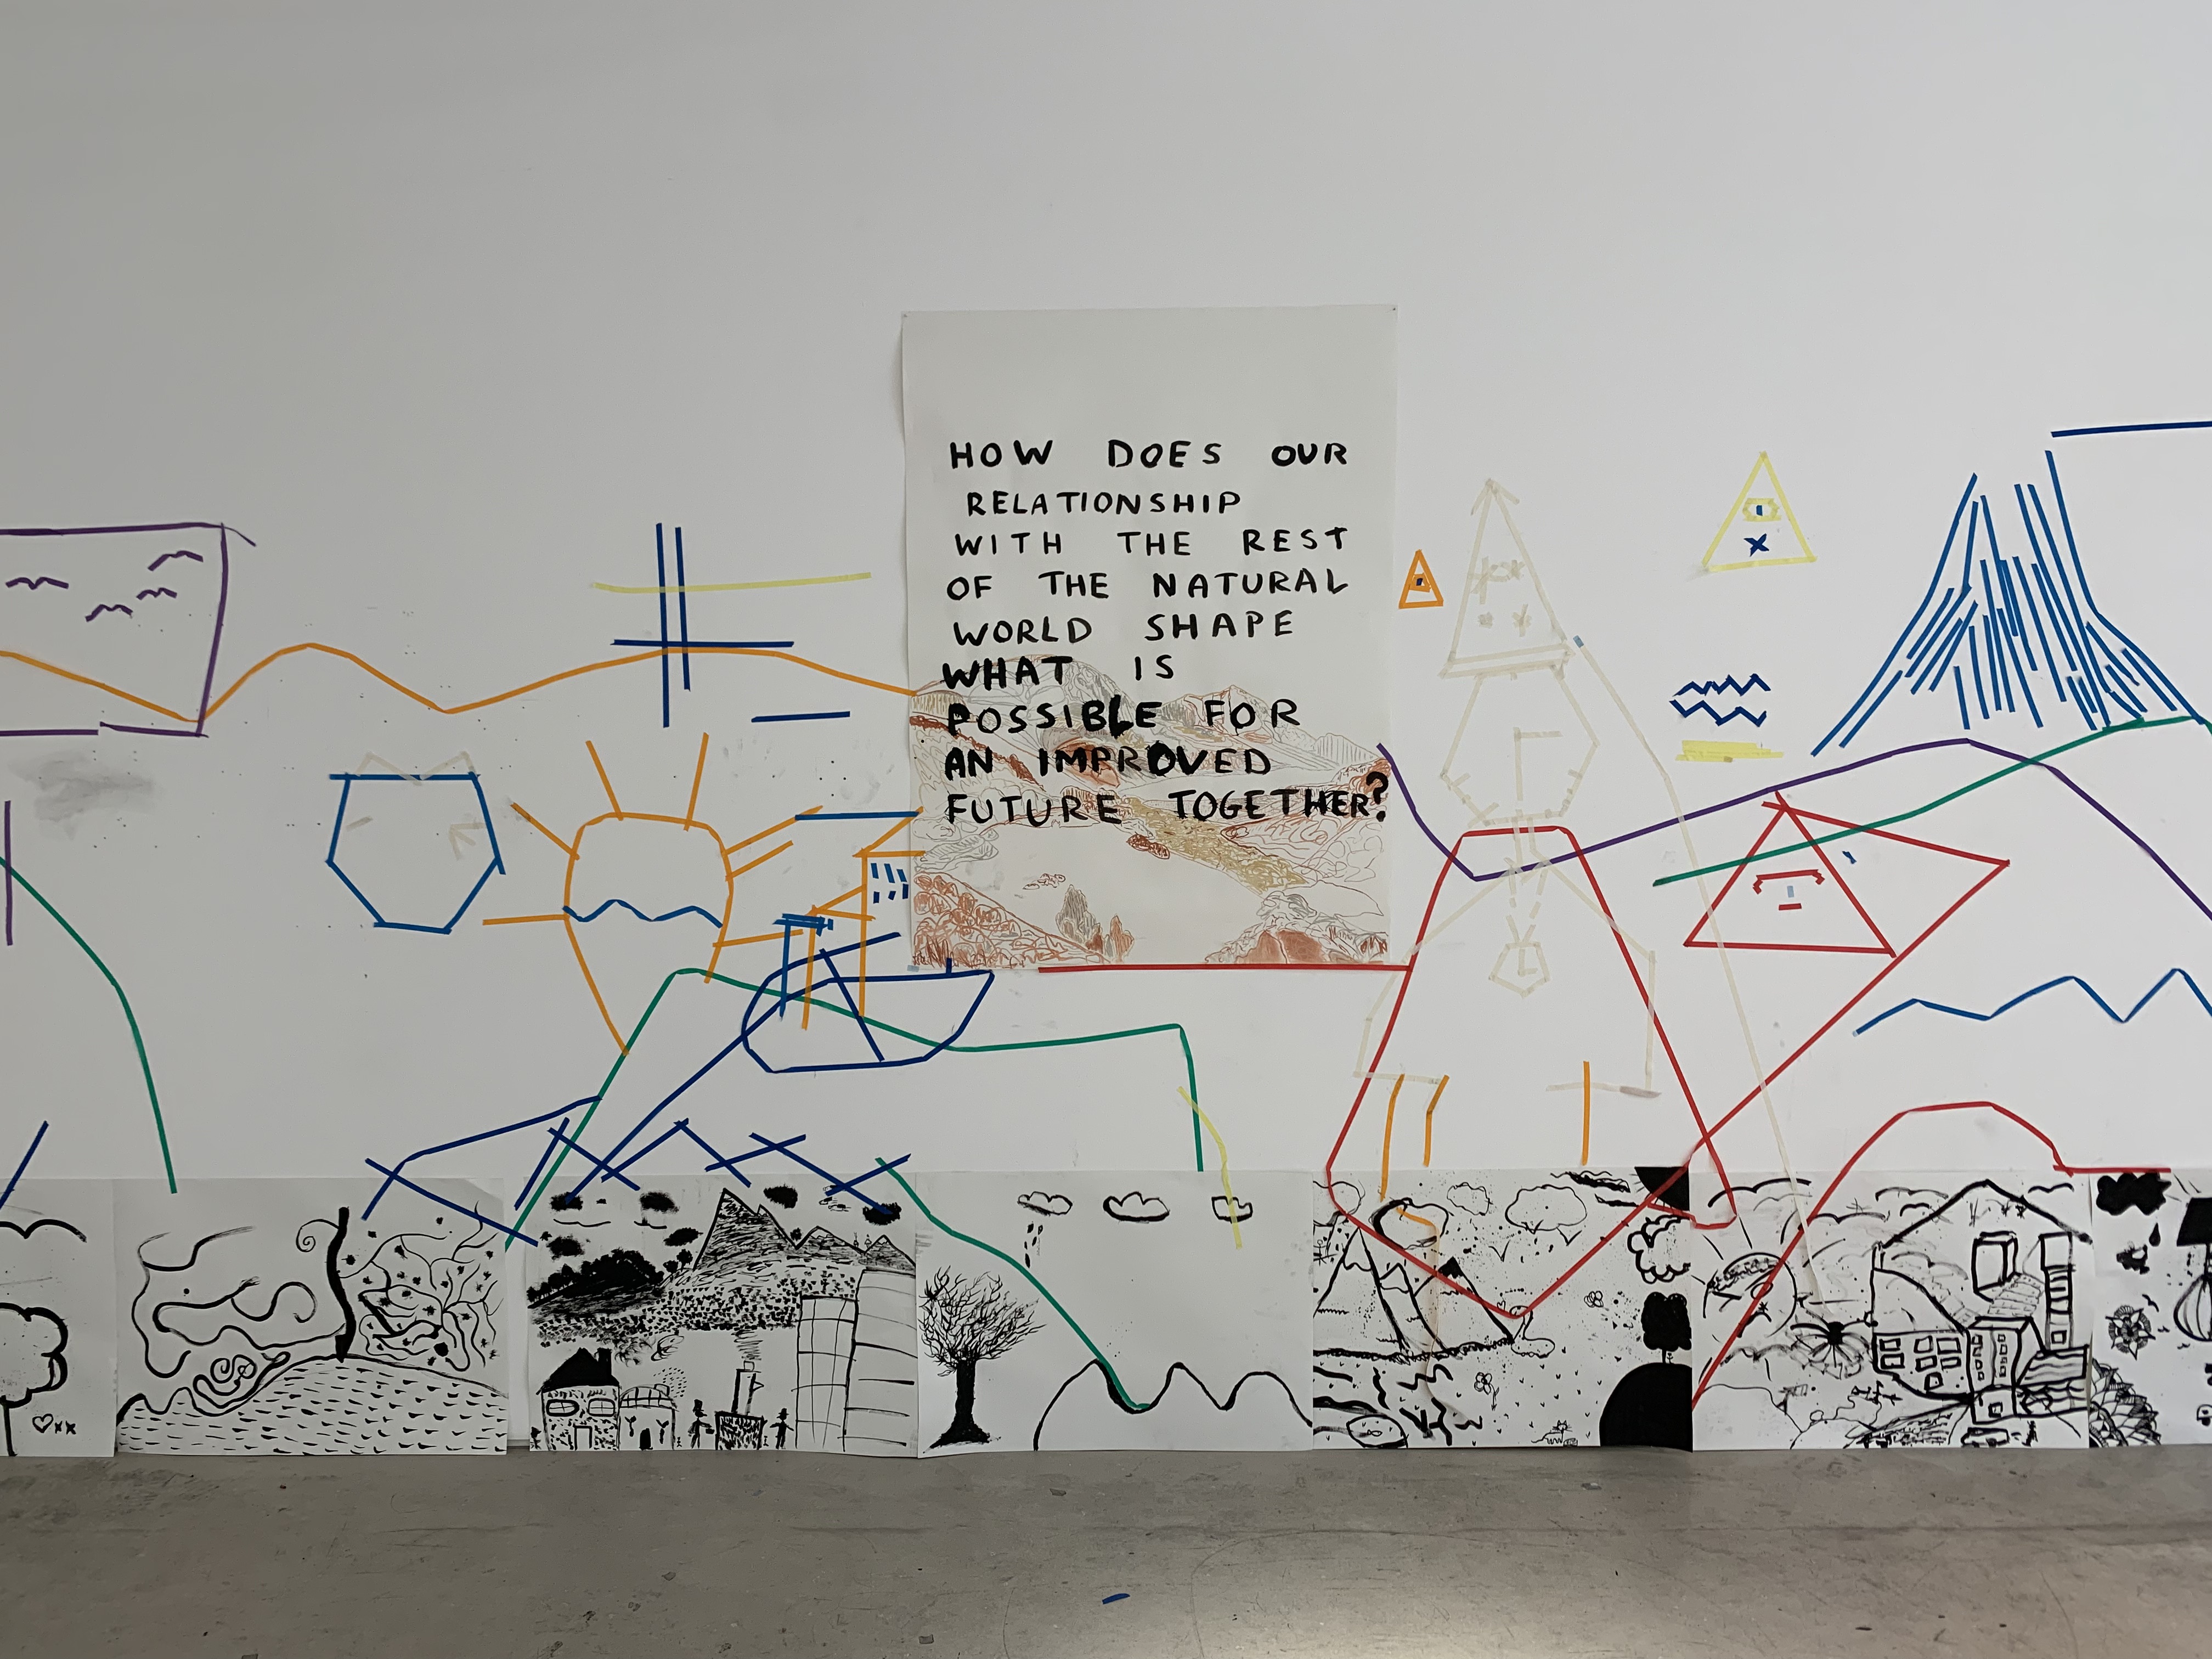 HOW DOES OUR
RELATIONSHIP
WITH THE REST
OF THE NATURAL
WORLD SHAPE
WHAT IS
POSSIBLE FOR
AN IMPROVED
FUTURE TOGETHER?